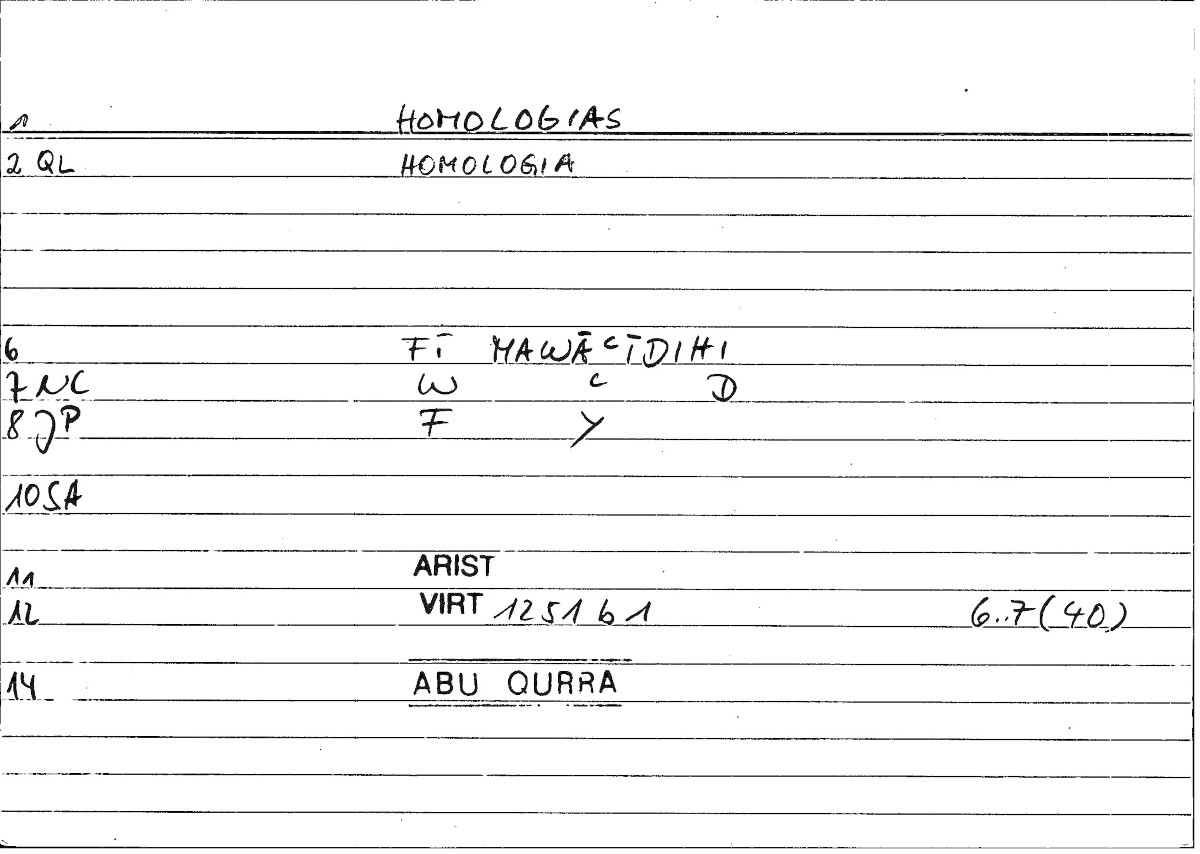 1 HOMOLOGIAS
2 QL HOMOLOGIA
6 FĪ MAWĀCĪDIHI
7 NC W C D
8 JP F Y
10 SA
11 ARIST
12 VIRT 1251 b 1 6..7(40)
14 ABU QURRA